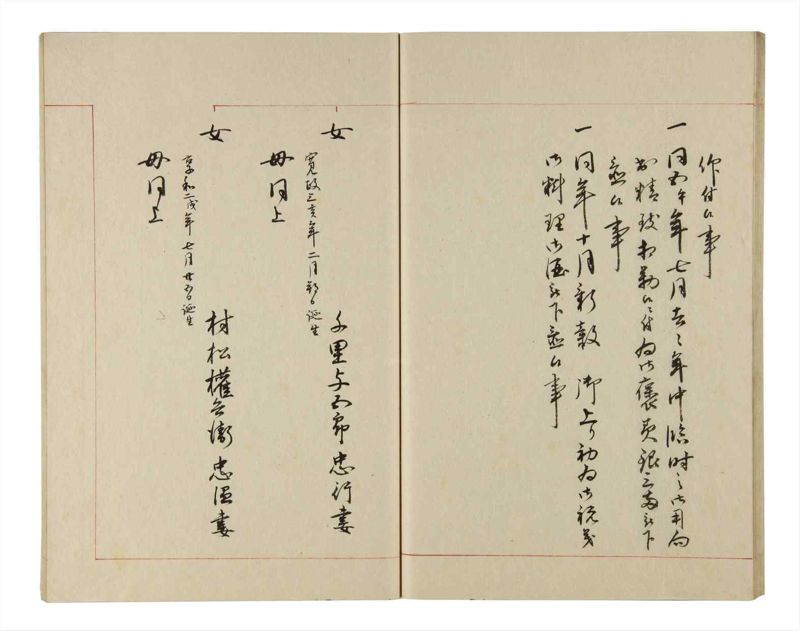 作付候事
一同午年七月去々年中臨時之御用向
出精致相勤候ニ付為御褒美銀三両被下
置候事
一同年十月新穀御上り初為御祝義
御料理御酒被下置候事
女
寛政三亥年二月朔日誕生
母同上
千里与五郎忠行妻
女
享和二戌年七月廿五日誕生
母同上
村松權兵衛忠温妻